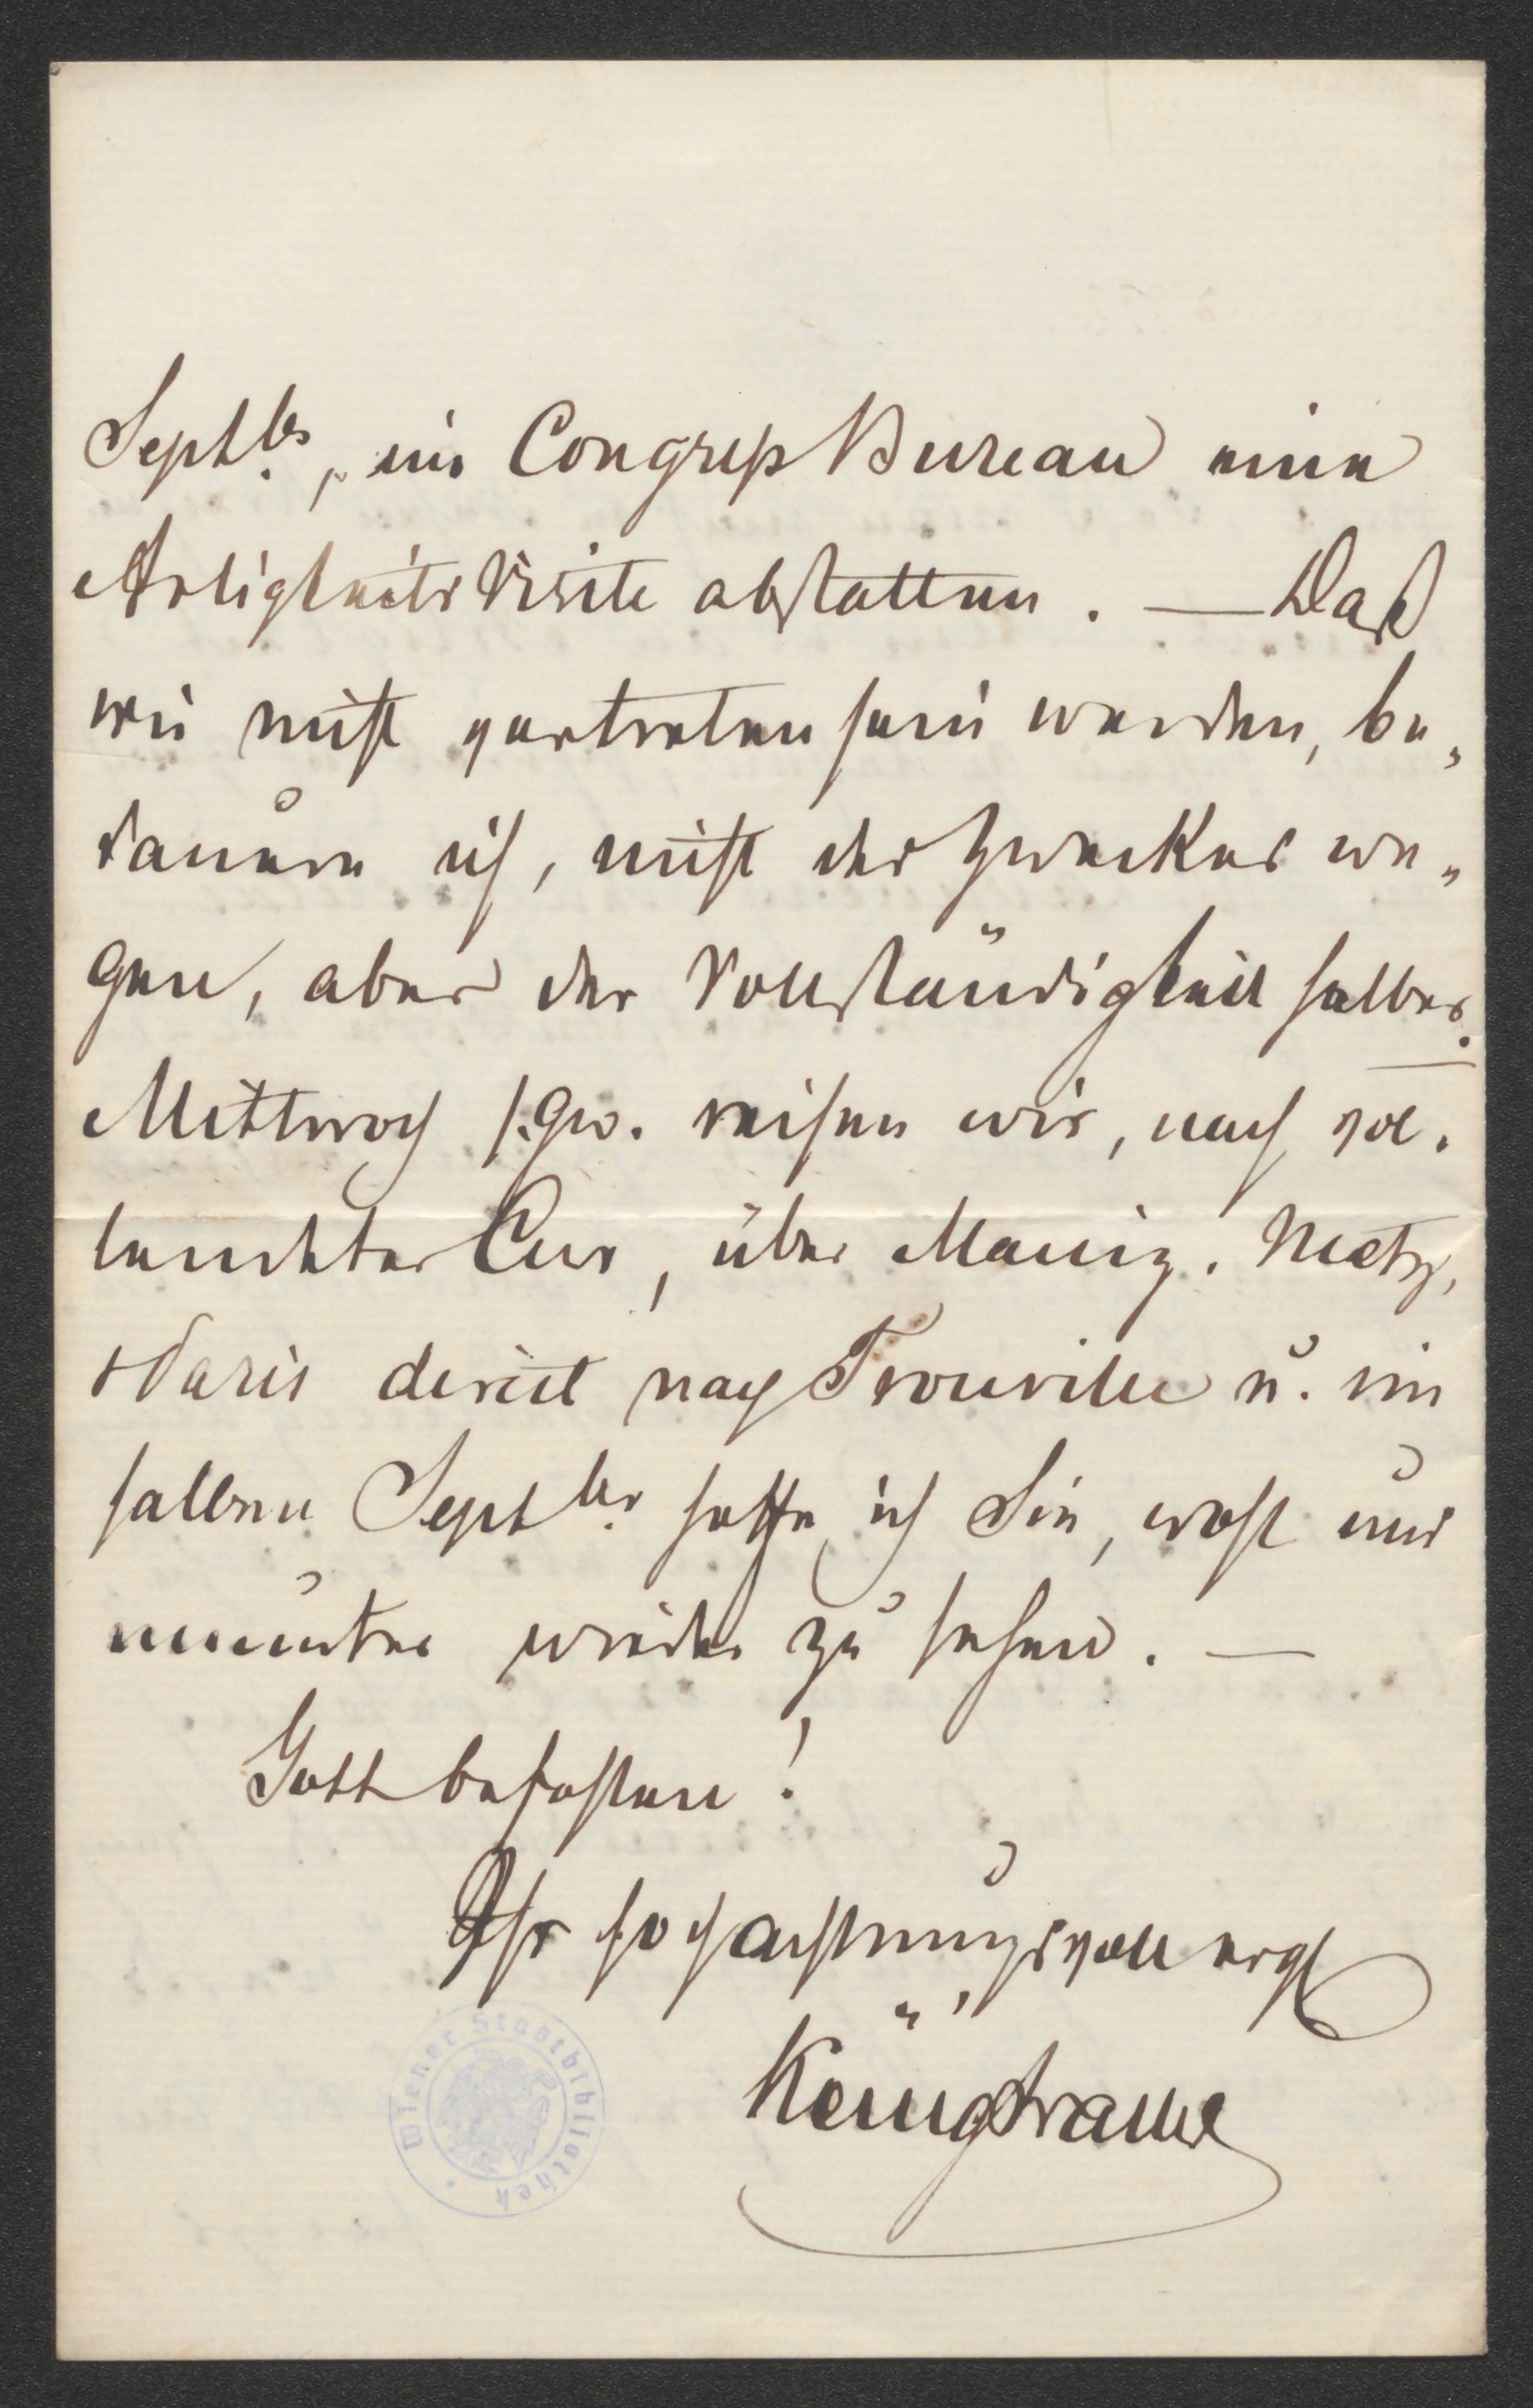 Septbr, im Congreß Bureau eine
Artigkeits Visite abstatten. — Daß
wir nicht vertreten sein werden, be„
dauere ich, nicht des Zweckes we„
gen, aber der Vollständigkeit halber.
Mittwoch reisen wir, nach vol.
lendeter Cur, über Mainz. Metz,
Paris direct nach Trouville u. im
halben Septbr hoffe ich Sie, wohl und
munter wieder zu sehen. —
Gott befohlen!
Ihr hochachtungsvoll ergb
Königstraue
Wiener Stadtbibliothek